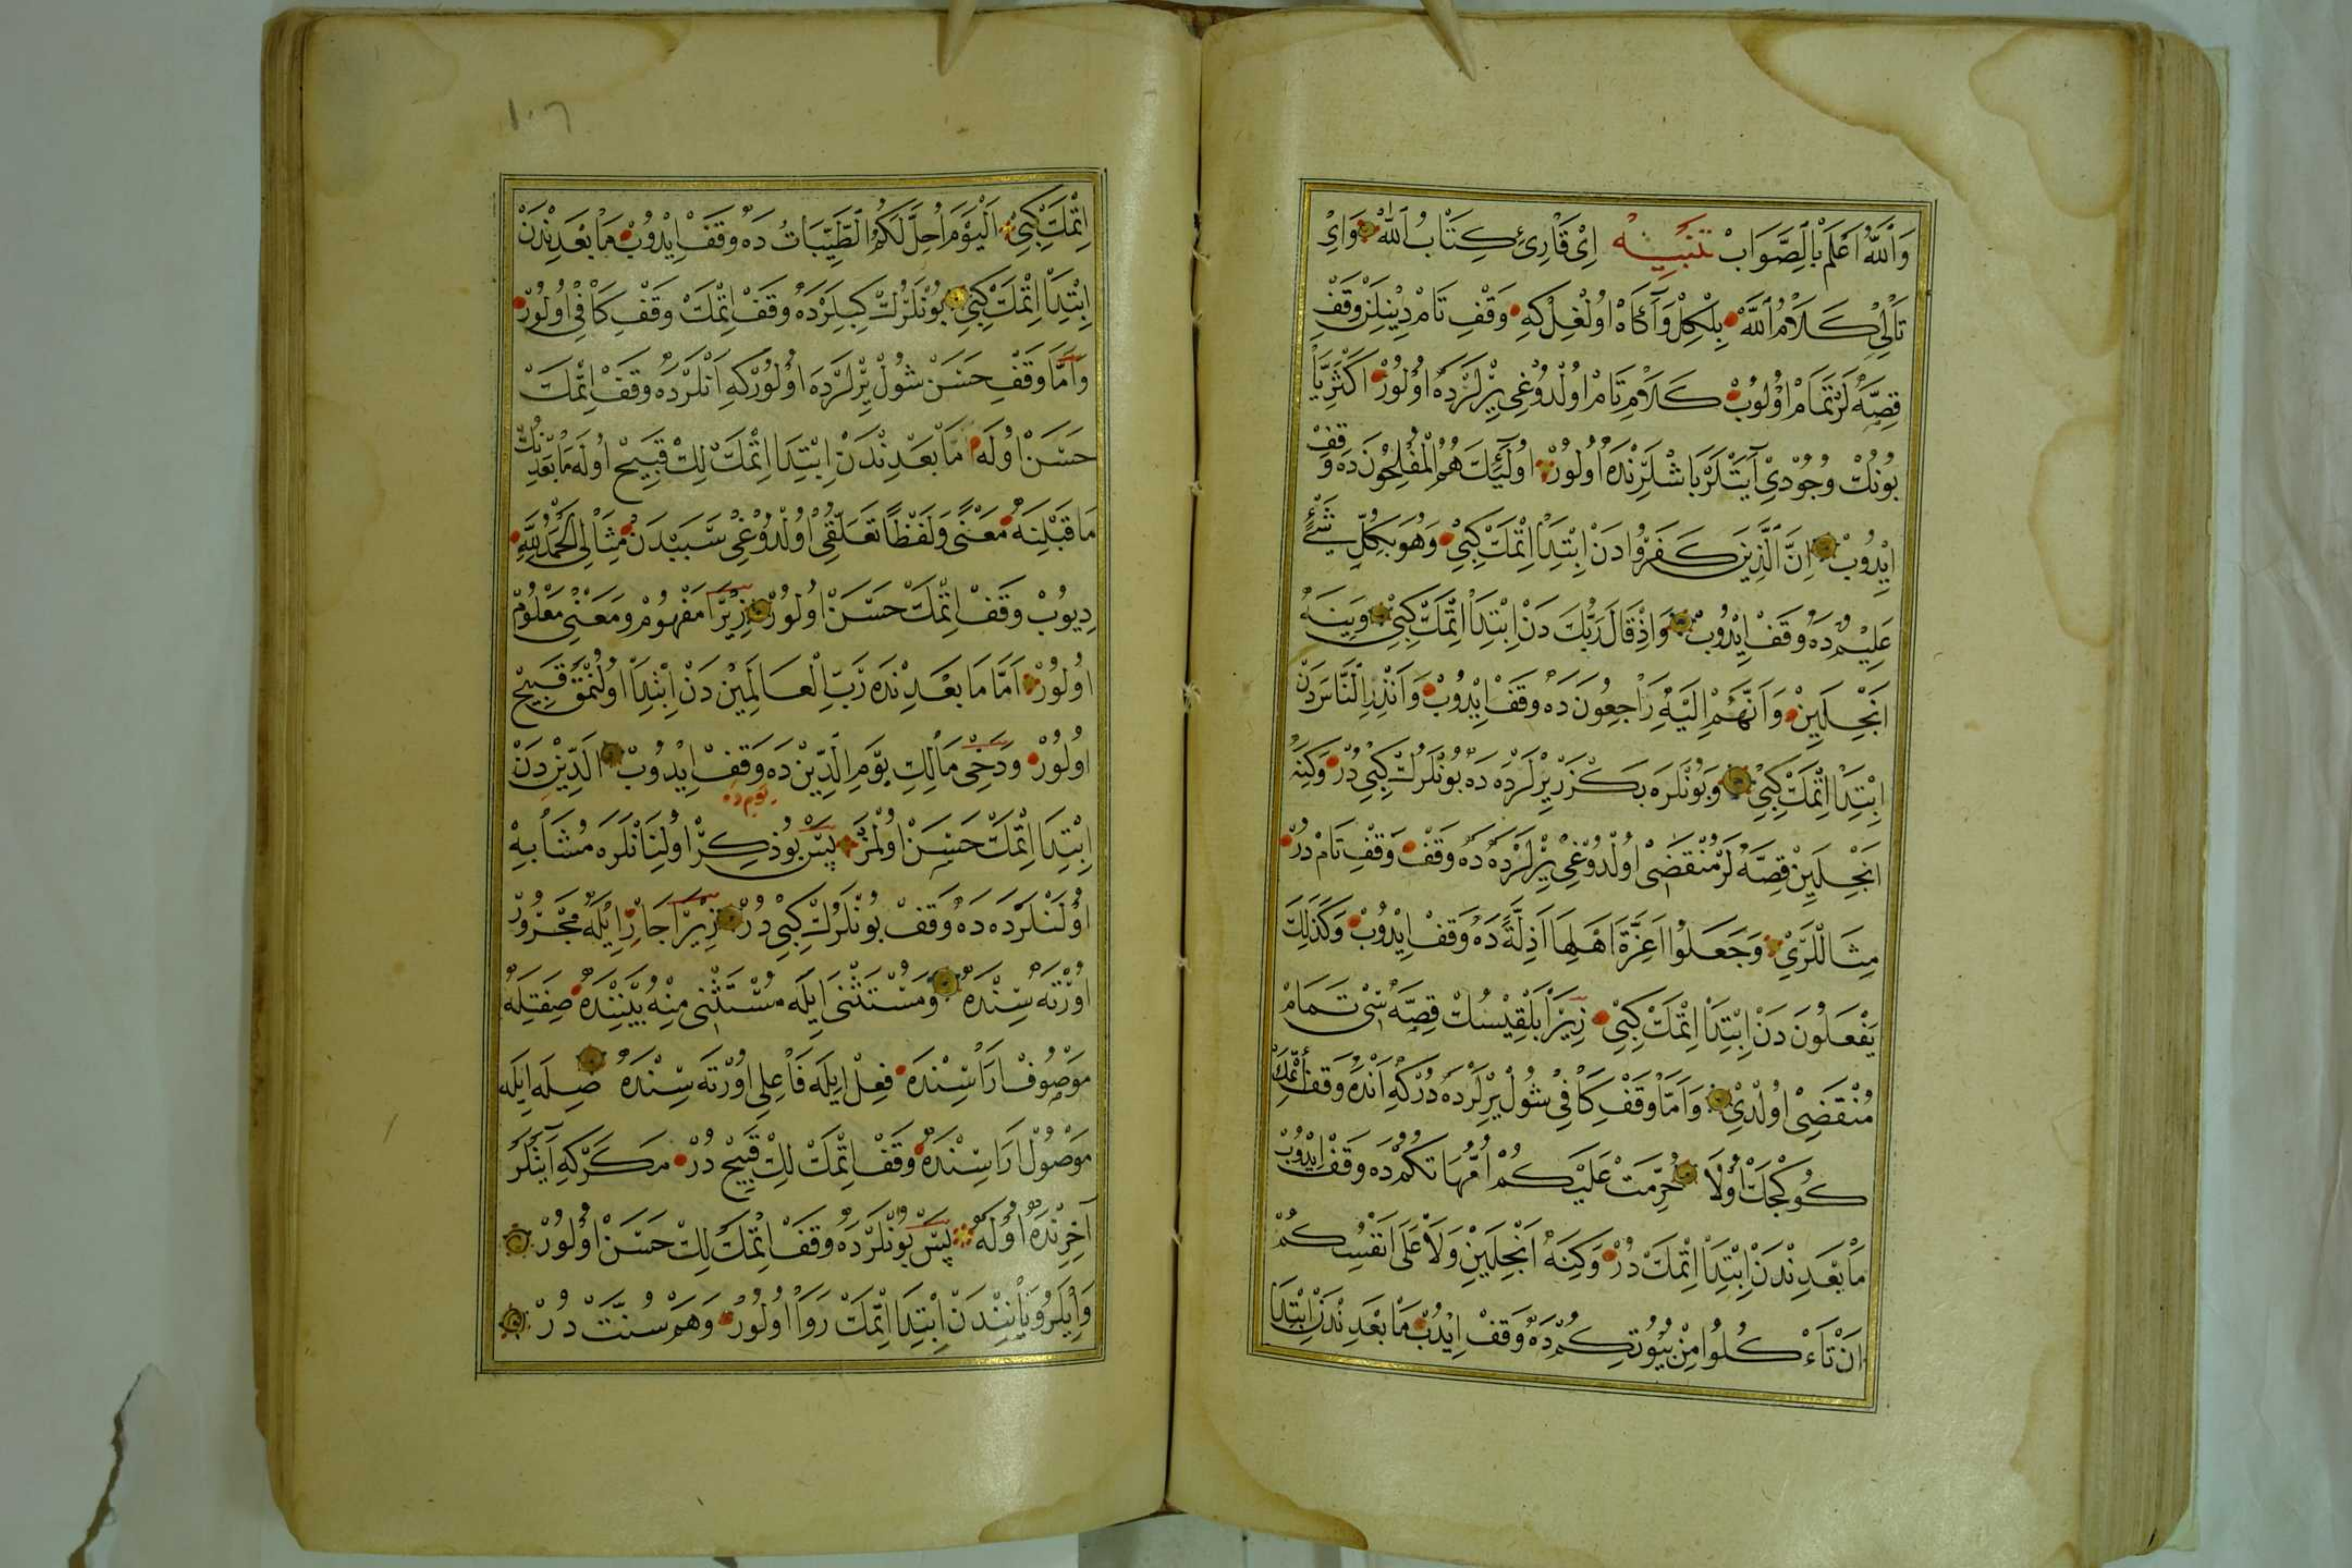 وَاللّٰهُ اَعْلَمُ بِالصَّوَابِ تَنْبِيهْ اِیْ قَارِئِ كِتَابُ اللّٰهْ وَاِیْ
تَالِیْ كَلَامُ اللّٰهْ بِلْكِلْ وَآكَاهْ اُولْغِلْ كِهْ وَقْفِ تَامْ دِينِلَنْ وَقْفِ
قِصَّهْ لَرْ تَمَامْ اُولُوبْ كَلَامِ تَامْ اُولْدُوغِی يِرْلَرْدَهْ اُولُورْ اَكْثَرِيَّا
بُونُكْ وُجُودِیْ آيَتْلَرْ بَاشْلَرِنْدَهْ اُولُورْ اُولٰئِكَ هُمُ الْمُفْلِحُونَ دَهْ وَقْفْ
اِيْدُوبْ اِنَّ الَّذِينَ كَفَرُوا دَنْ اِبْتِدَا اِتْمَكْ كِبِیْ وَهُوَ بِكُلِّ شَيْءٍ
عَلِيمٌ دَهْ وَقَفْ اِيْدُوبْ وَاِذْ قَالَ رَبُّكَ دَنْ اِبْتِدَا اِتْمَكْ كِبِیْ وَيِنَهْ
اَنْجِلَيِنْ وَاَنَّهُمْ اِلَيْهِ رَاجِعُونَ دَهْ وَقَفْ اِيْدُوبْ وَاَنْذِرِ النَّاسَ دَنْ
اِبْتِدَا اِتْمَكْ كِبِیْ وَبُونْلَرَهْ بَكْزَرْ يِرْلَرْدَهْ دَهْ بُونْلَرُكْ كِبِی دُرْ وَكِنَهْ
اَنْجِلَيِنْ قِصَّهْ لَرْ مُنْقَضِیْ اُولْدُوغِیْ يِرْلَرْدَهْ دَهْ وَقَفْ وَقْفِ تَامْ دُرْ
مِثَالْلَرِیْ وَجَعَلُوا اَعِزَّةَ اَهْلِهَا اَذِلَّةً دَهْ وَقَفْ اِيْدُوبْ وَكَذٰلِكَ
يَفْعَلُونَ دَنْ اِبْتِدَا اِتْمَكْ كِبِیْ زِيرَا بَلْقِيسُكْ قِصَّهْ سِی تَمَامْ
مُنْقَضِیْ اُولْدِیْ وَاَمَّا وَقْفِ كَافِی شُولْ يِرْلَرْدَهْ دُرْكِهْ اَنْدَهْ وَقَفْ اِتْمَكْ
كُوكْجَكْ اُولَا حُرِّمَتْ عَلَيْكُمْ اُمَّهَاتُكُمْ دَهْ وَقَفْ اِيْدُوبْ
مَا بَعْدِنْدَنْ اِبْتِدَا اِتْمَكْ دُرْ وَكِنَهْ اَنْجِلَيِنْ وَلَا عَلٰى اَنْفُسِكُمْ
اَنْ تَاءْكُلُوا مِنْ بُيُوتِكُمْ دَهْ وَقَفْ اِيْدُبْ مَا بَعْدِنْدَنْ اِبْتِدَا
اِتْمَكْ كِبِیْ اَلْيَوْمَ اُحِلَّ لَكُمُ الطَّيِّبَاتُ دَهْ وَقَفْ اِيْدُوبْ مَا بَعْدِنْدَنْ
اِبْتِدَا اِتْمَكْ كِبِیْ بُونْلَرُكْ كِبِلَرْدَهْ وَقَفْ اِتْمَكْ وَقْفِ كَافِیْ اُولُورْ
وَاَمَّا وَقْفِ حَسَنْ شُولْ يِرْلَرْدَهْ اُولُورْكِهْ اَنْلَرْدَهْ وَقَفْ اِتْمَكْ
حَسَنْ اُولَهْ اَمَّا بَعْدِنْدَنْ اِبْتِدَا اِتْمَكْلِكْ قَبِيحْ اُولَهْ مَا بَعْدِنُكْ
مَا قَبْلِنَهْ مَعْنًى وَلَفْظًا تَعَلُّقِی اُولْدُوغِیْ سَبَبْدَنْ مِثَالِی اَلْحَمْدُ لِلّٰهِ
دِيوُبْ وَقَفْ اِتْمَكْ حَسَنْ اُولُورْ زِيرَا مَفْهُومْ وَمَعْنِی مَعْلُومْ
اُولُورْ اَمَّا مَا بَعْدِنْدَهْ رَبِّ الْعَالَمِينَ دَنْ اِبْتِدَا اُولُنْمَقْ قَبِيحْ
اُولُورْ وَدَخِی مَالِكِ يَوْمِ الدِّينْ دَهْ وَقَفْ اِيْدُوبْ اَلدِّينْ دَنْ
يَوْم دَه
اِبْتِدَا اِتْمَكْ حَسَنْ اُولْمَزْ پَسْ بُو ذِكِرْ اُولِنَانْلَرَهْ مُشَابِهْ
اُولَنْلَرْدَهْ دَهْ وَقَفْ بُونْلَرُكْ كِبِیْ دُرْ زِيرَا جَارِّ اِيلَهْ مَجْرُورْ
اُورْتَهْ سِنْدَهْ وَمُسْتَثْنٰى اِيلَهْ مُسْتَثْنٰى مِنْهُ بَيْنِنْدَهْ صِفَتِلَهْ
مَوْصُوفْ ارَاسِنْدَهْ فِعِلْ اِيلَهْ فَاعِلِی اُورْتَهْ سِنْدَهْ صِلَهْ اِيلَهْ
مَوْصُولْ ارَاسِنْدَهْ وَقَفْ اِتْمَكْلِكْ قَبِيحْ دُرْ مَكَرْكِهْ آيَتْلَرْ
آخِرِنْدَهْ اُولَهْ پَسْ بُونْلَرْدَهْ وَقَفْ اِتْمَكْلِكْ حَسَنْ اُولُورْ
وَاِيلَرُويَانِنْدَنْ اِبْتِدَا اِتْمَكْ رَوَا اُولُورْ وَهَمْ سُنَّتْ دُرْ